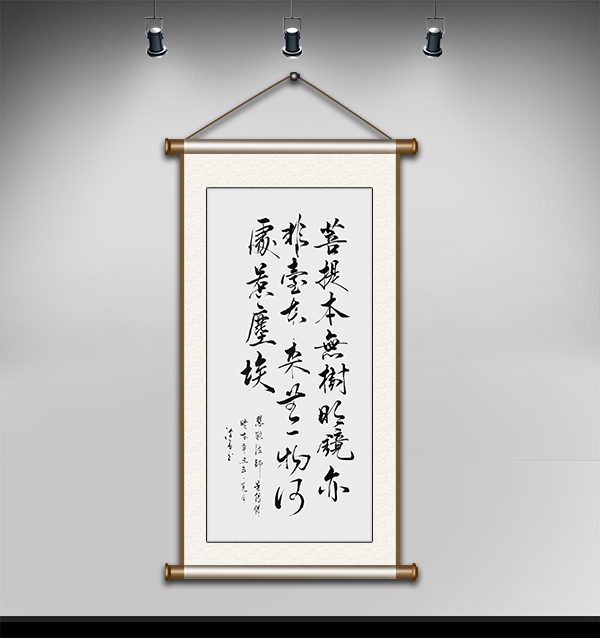 菩提本無樹明鏡亦
非臺本來無一物何
處惹塵埃
慧能法師菩提偈